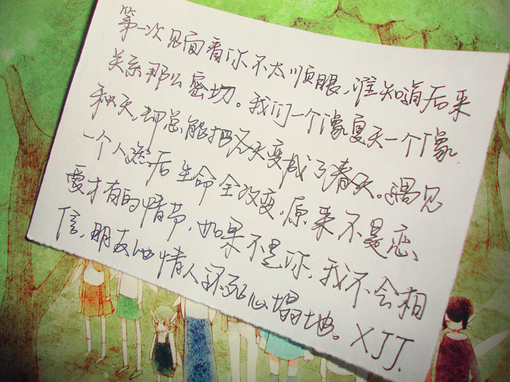 第一次见面看你不太顺眼，谁知道后来
关系那么密切。我们一个像夏天一个像
秋天，却总能把冬天变成了春天。遇见
一个人然后生命全改变，原来不是恋
爱才有的情节，如果不是你，我不会相
信，朋友比情人还死心塌地。XJJ.